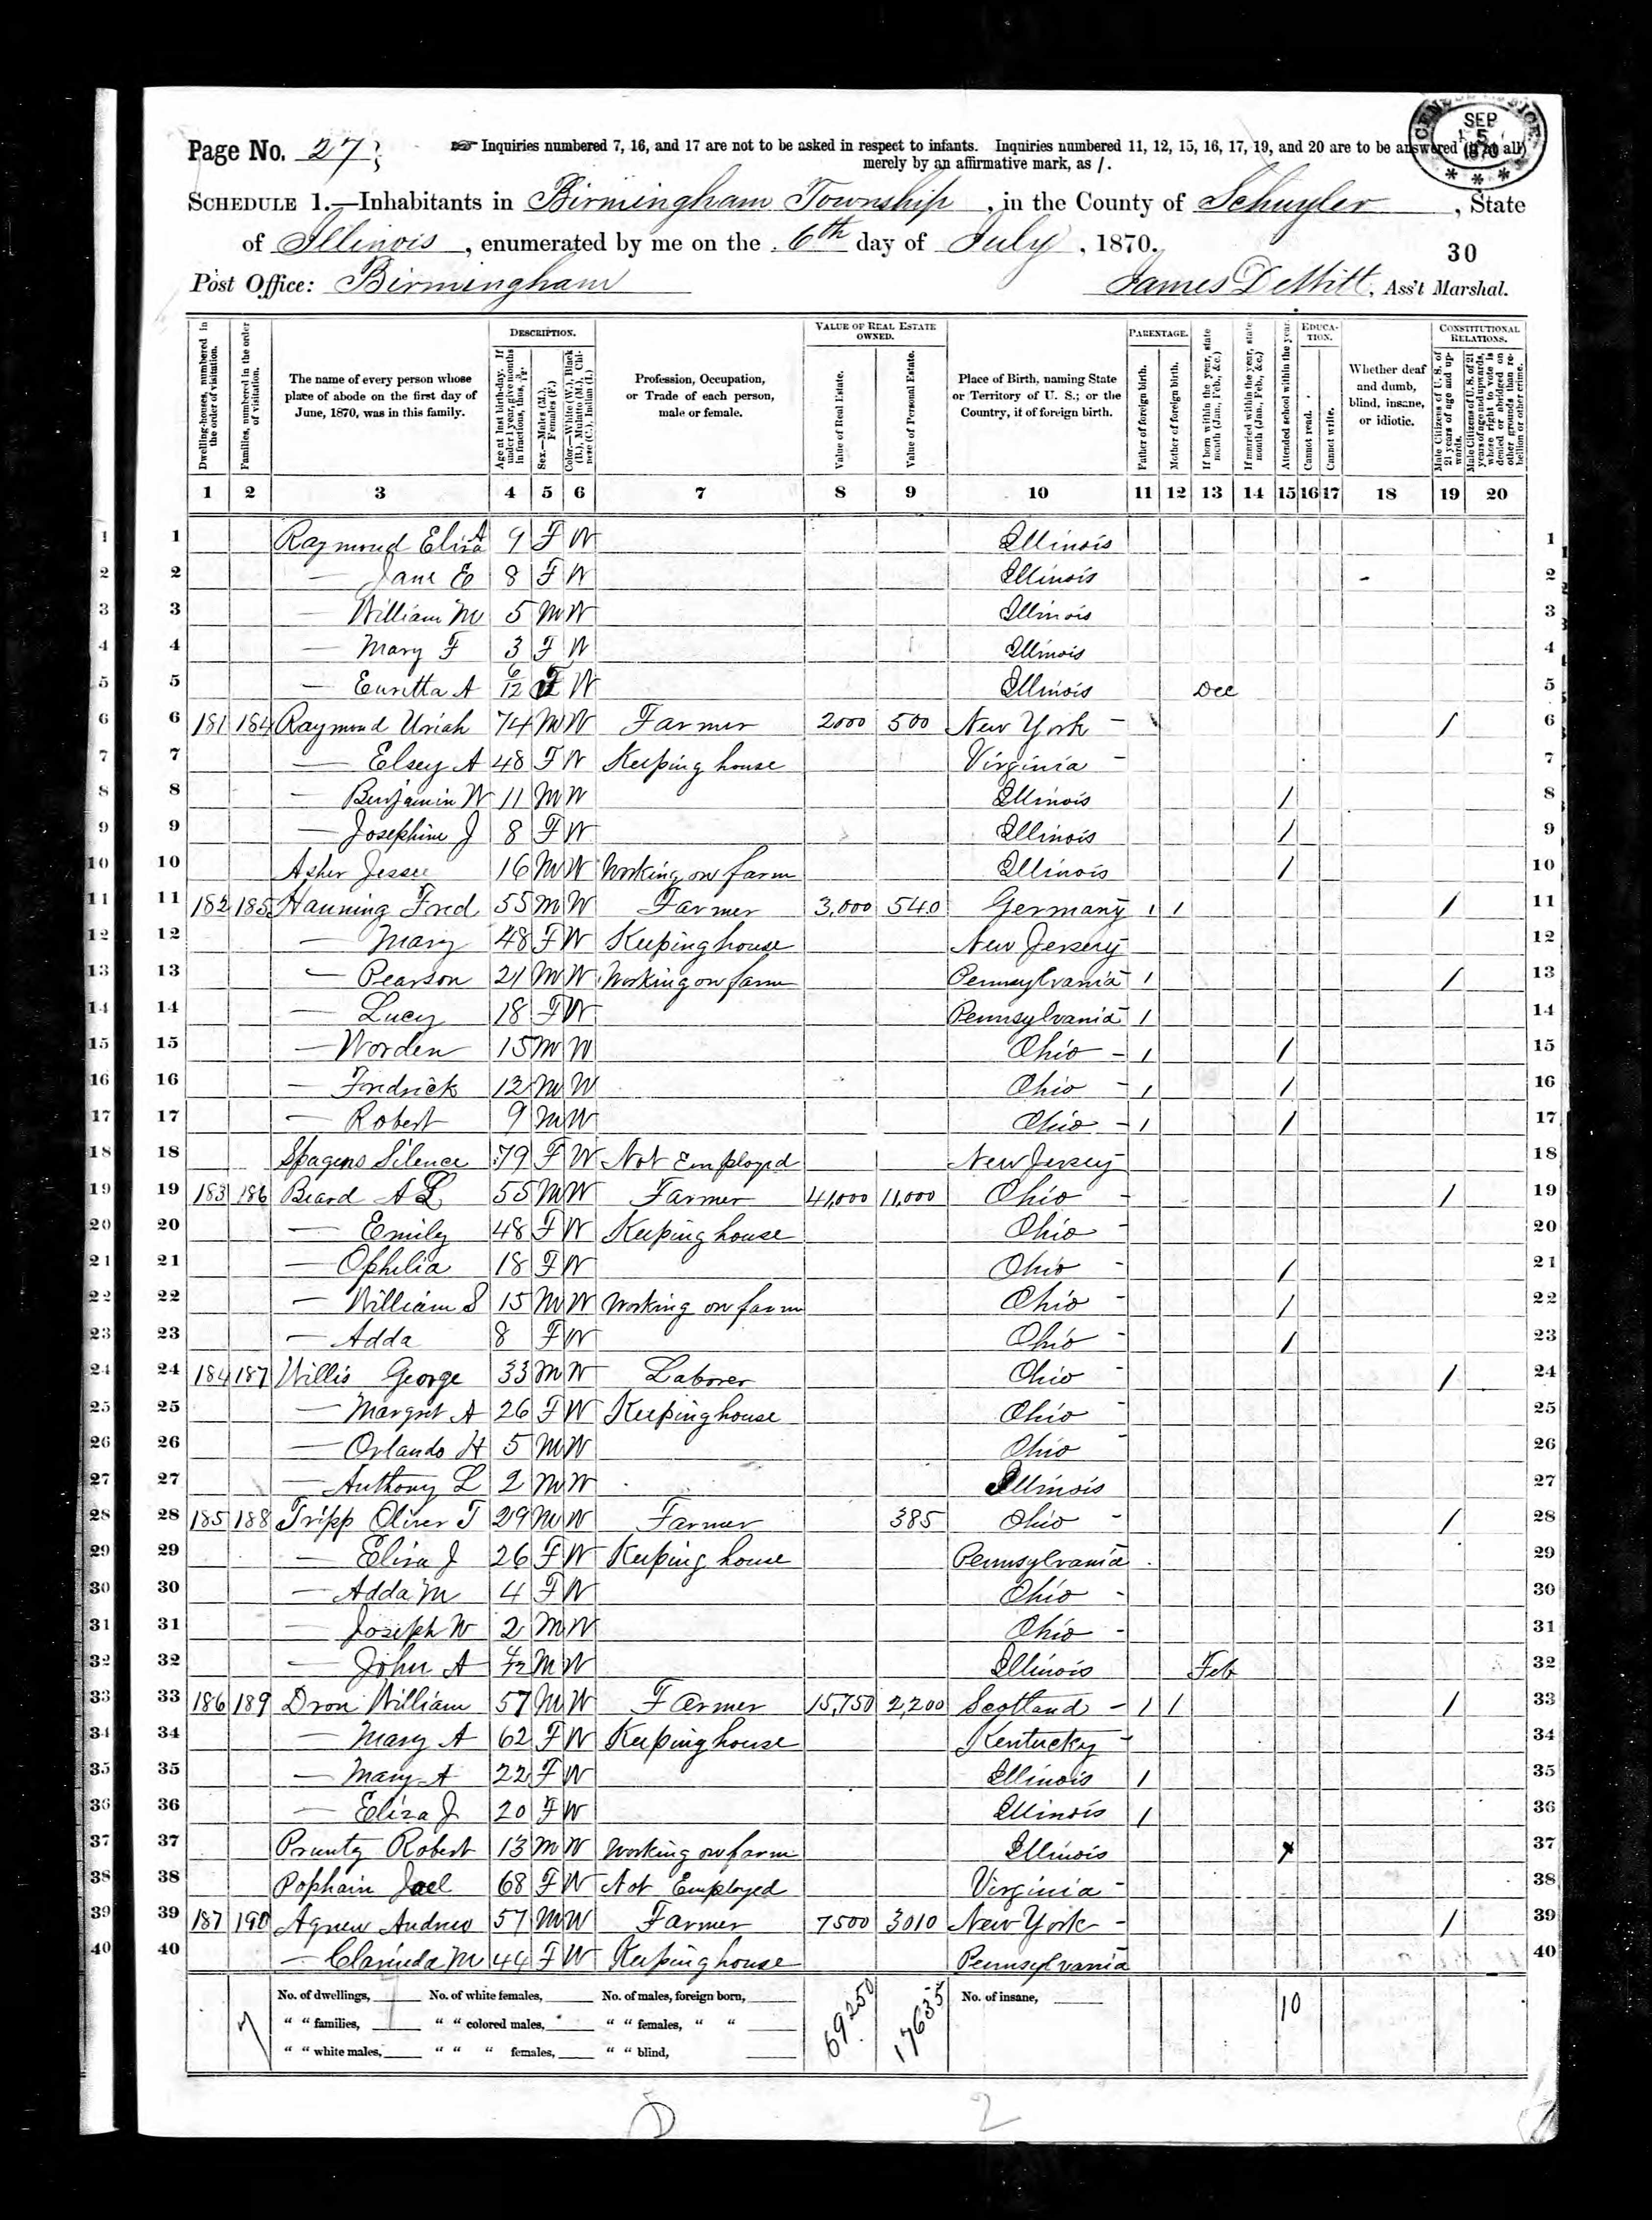 Page No. 27
Inquiries numbered 7, 16, and 17 are not to be asked in respect to infants. Inquiries numbered 11, 12, 15, 16, 17, 19, and 20 are to be answered (if at all)
merely by an affirmative mark, as /.
SEP
5
1870
SCHEDULE 1.—Inhabitants in Birmingham Township, in the County of Schuyler, State
of Illinois, enumerated by me on the 6th day of July, 1870.
30
Post Office: Birmingham James DeWitt, Ass't Marshal.
Dwelling-houses, numbered in the order of visitation.
Families, numbered in the order of visitation.
The name of every person whose place of abode on the first day of June, 1870, was in this family.
DESCRIPTION.
Age at last birth-day. If under 1 year, give months in fractions, thus, 3/12.
Sex.—Males (M.), Females (F.)
Color.—White (W.), Black (B.), Mulatto (M.), Chinese (C.), Indian (I.)
Profession, Occupation, or Trade of each person, male or female.
VALUE OF REAL ESTATE OWNED.
Value of Real Estate.
Value of Personal Estate.
Place of Birth, naming State or Territory of U. S.; or the Country, if of foreign birth.
PARENTAGE.
Father of foreign birth.
Mother of foreign birth.
If born within the year, state month (Jan., Feb., &c.)
If married within the year, state month (Jan., Feb., &c.)
Attended school within the year.
EDUCATION.
Cannot read.
Cannot write.
Whether deaf and dumb, blind, insane, or idiotic.
CONSTITUTIONAL RELATIONS.
Male Citizens of U. S. of 21 years of age and upwards.
Male Citizens of U. S. of 21 years of age and upwards, where right to vote is denied or abridged on other grounds than rebellion or other crime.
1 2 3 4 5 6 7 8 9 10 11 12 13 14 15 16 17 18 19 20
1 1 Raymond Eliza A 9 F W Illinois 1
2 2 — Jane E 8 F W Illinois 2
3 3 — William M 5 M W Illinois 3
4 4 — Mary F 3 F W Illinois 4
5 5 — Euretta A 6/12 F W Illinois Dec 5
6 6 181 184 Raymond Uriah 74 M W Farmer 2000 500 New York - / 6
7 7 — Elsey A 48 F W Keeping house Virginia - 7
8 8 — Benjamin W 11 M W Illinois / 8
9 9 — Josephine J 8 F W Illinois / 9
10 10 Asher Jesse 16 M W Working on farm Illinois / 10
11 11 182 185 Hanning Fred 55 M W Farmer 3,000 540 Germany / / / 11
12 12 — Mary 48 F W Keeping house New Jersey 12
13 13 — Pearson 21 M W Working on farm Pennsylvania / / 13
14 14 — Lucy 18 F W Pennsylvania / 14
15 15 — Worden 15 M W Ohio - / / 15
16 16 — Fredrick 12 M W Ohio - / / 16
17 17 — Robert 9 M W Ohio - / / 17
18 18 Spagens Silence 79 F W Not Employed New Jersey 18
19 19 183 186 Beard A L 55 M W Farmer 41,000 11,000 Ohio - / 19
20 20 — Emily 48 F W Keeping house Ohio - 20
21 21 — Ophelia 18 F W Ohio - / 21
22 22 — William S 15 M W Working on farm Ohio - / 22
23 23 — Adda 8 F W Ohio - / 23
24 24 184 187 Willis George 33 M W Laborer Ohio - / 24
25 25 — Margret A 26 F W Keeping house Ohio - 25
26 26 — Orlando H 5 M W Ohio - 26
27 27 — Anthony L 2 M W Illinois 27
28 28 185 188 Tripp Oliver T 29 M W Farmer 385 Ohio - / 28
29 29 — Eliza J 26 F W Keeping house Pennsylvania 29
30 30 — Adda M 4 F W Ohio - 30
31 31 — Joseph W 2 M W Ohio - 31
32 32 — John A 4/12 M W Illinois Feb 32
33 33 186 189 Dron William 57 M W Farmer 15,750 2,200 Scotland - / / / 33
34 34 — Mary A 62 F W Keeping house Kentucky - 34
35 35 — Mary A 22 F W Illinois / 35
36 36 — Eliza J 20 F W Illinois / 36
37 37 Prunty Robert 13 M W Working on farm Illinois / 37
38 38 Popham 68 F W Not Employed Virginia - 38
39 39 187 190 Agnew Andrew 57 M W Farmer 7500 3010 New York - / 39
40 40 — Clarinda M 44 F W Keeping house Pennsylvania 40
No. of dwellings, No. of white females, No. of males, foreign born, No. of insane,
" " families, " " colored males, " " females, " "
" " white males, " " " females, " " blind,
7 69250 17635 10
2